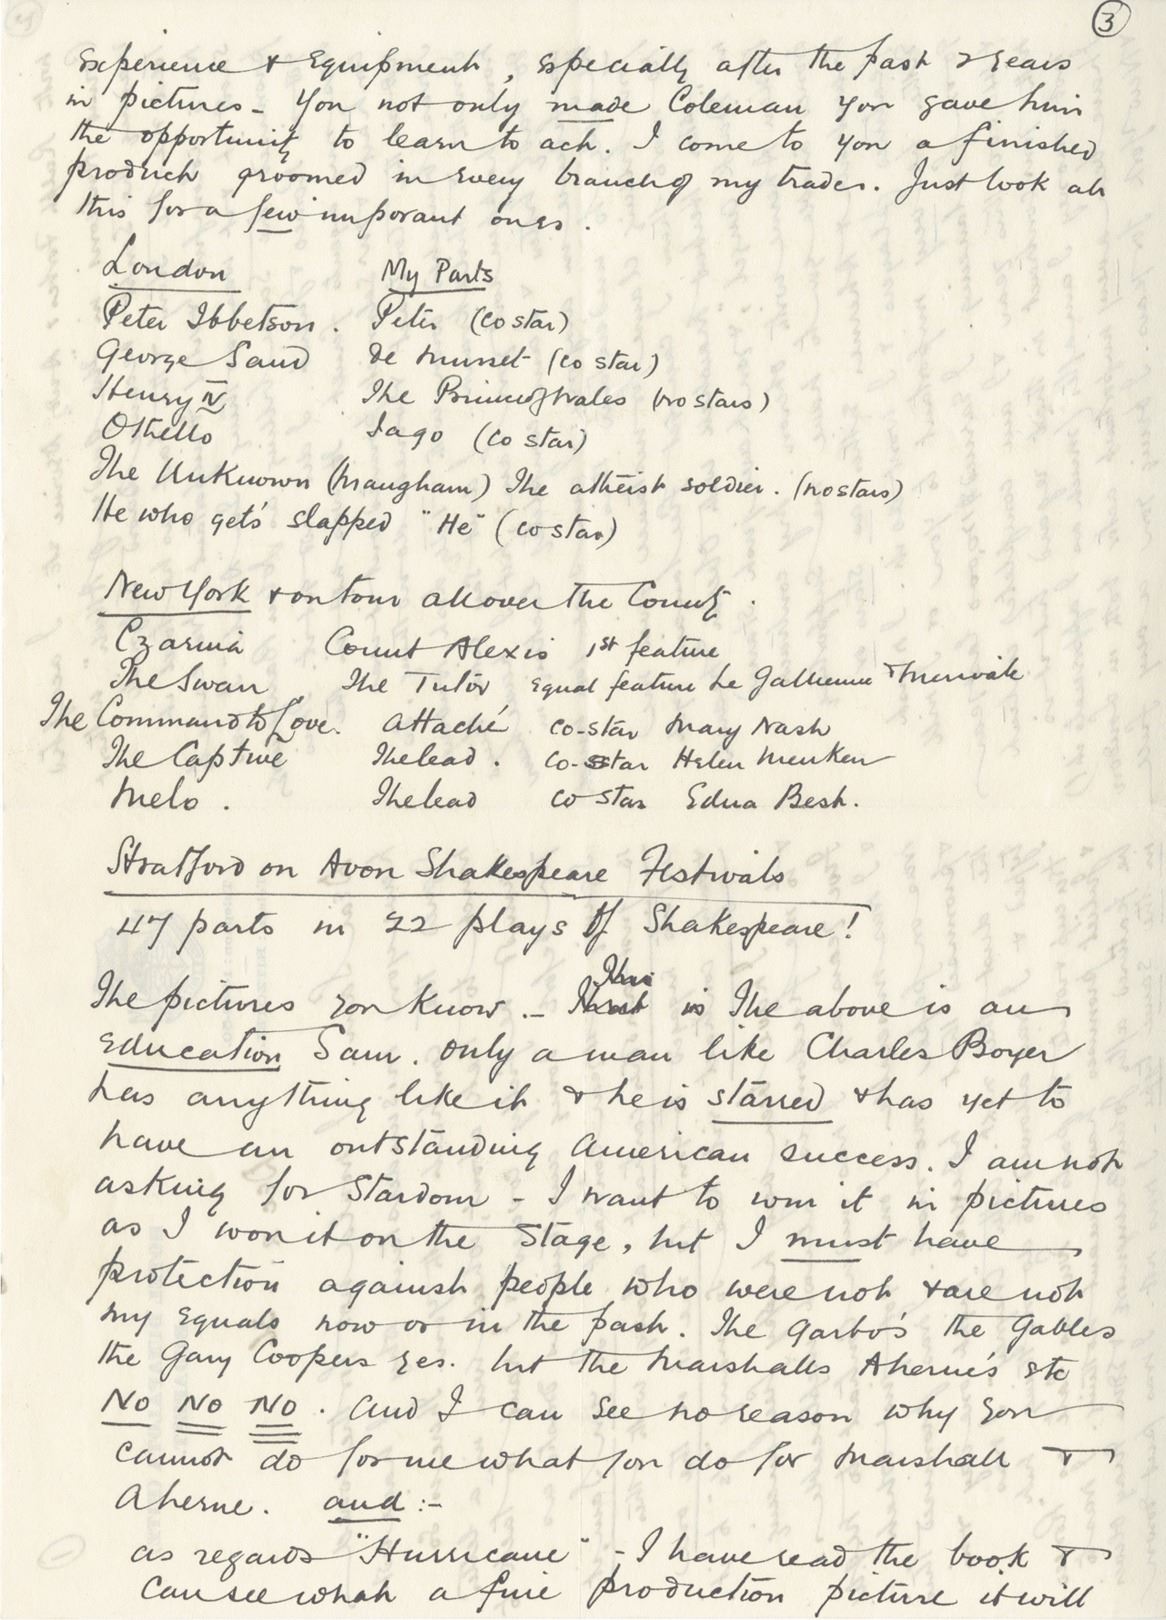 3
Experience & Equipment, especially after the past 2 years
in pictures - You not only made Coleman you gave him
the opportunity to learn to act. I come to you a finished
product groomed in every branch of my trade. Just look at
this for a few imporant ones.
London My Parts
Peter Ibbetson. Peter (co star)
George Sand De Musset (co star)
Henry IV The Prince of Wales (no stars)
Othello Iago (co star)
The Unknown (Maugham) The atheist soldier. (no stars)
He who gets slapped "He" (co star)
New York & on tour all over the Country.
Czarina Count Alexis 1st feature
The Swan The Tutor Equal feature Le Gallienne & Merivale
The Command to Love. Attaché co-star Mary Nash
The Captive The lead. co-star Helen Menken
Melo. The lead co star Edna Best.
Stratford on Avon Shakespeare Festivals
47 parts in 22 plays of Shakespeare!
The pictures you know. - is The above is an
Education Sam. only a man like Charles Boyer
has anything like it & he is starred & has yet to
have an outstanding American success. I am not
asking for Stardom - I want to win it in pictures
as I won it on the Stage, but I must have
protection against people who were not & are not
my Equals now or in the past. The Garbo's the Gables
the Gary Coopers yes. but the Marshalls Aherne's etc
No No No. and I can see no reason why you
cannot do for me what you do for Marshall &
Aherne. and :-
as regards "Hurricane" - I have read the book &
can see what a fine production picture it will